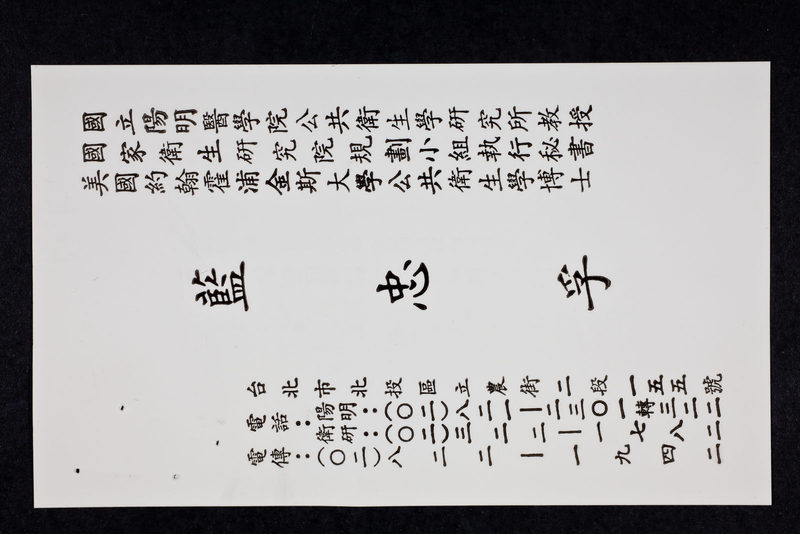 國立陽明醫學院公共衛生學研究所教授
國家衛生研究院規劃小組執行秘書
美國約翰霍浦金斯大學公共衛生學博士
藍忠孚
台北市北投區立農街二段一五五號
電話：陽明：(○二)八二一
衛研：(○二)三
電傳：(○二)八二二｜一九四二